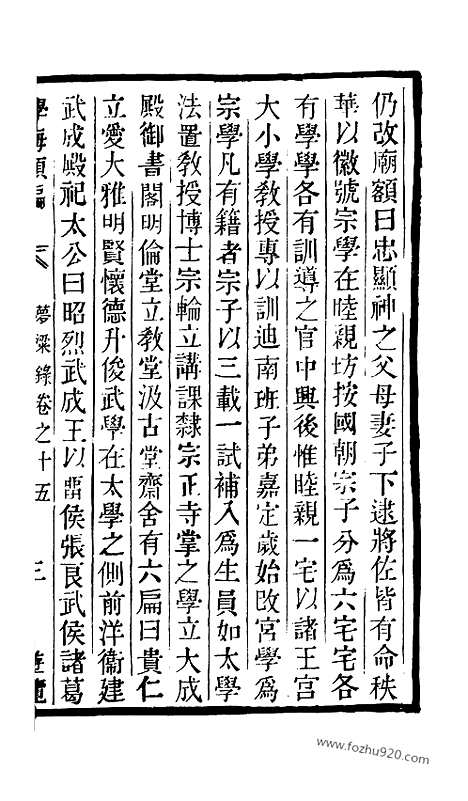 仍改廟額曰忠顯神之父母妻子下逮將佐皆有命秩
華以徽號宗學在睦親坊按國朝宗子分爲六宅宅各
有學學各有訓導之官中興後惟睦親一宅以諸王宮
大小學敎授專以訓迪南班子弟嘉定歲始改宮學爲
宗學凡有籍者宗子以三載一試補入爲生員如太學
法置敎授博士宗輪立講課隸宗正寺掌之學立大成
殿御書閣明倫堂立敎堂汲古堂齋舍有六扁曰貴仁
立愛大雅明賢懷德升俊武學在太學之側前洋衞建
武成殿祀太公曰昭烈武成王以畱侯張良武侯諸葛
學海類編
夢粱錄卷之十五
三
遊覽
www.fozhu920.com